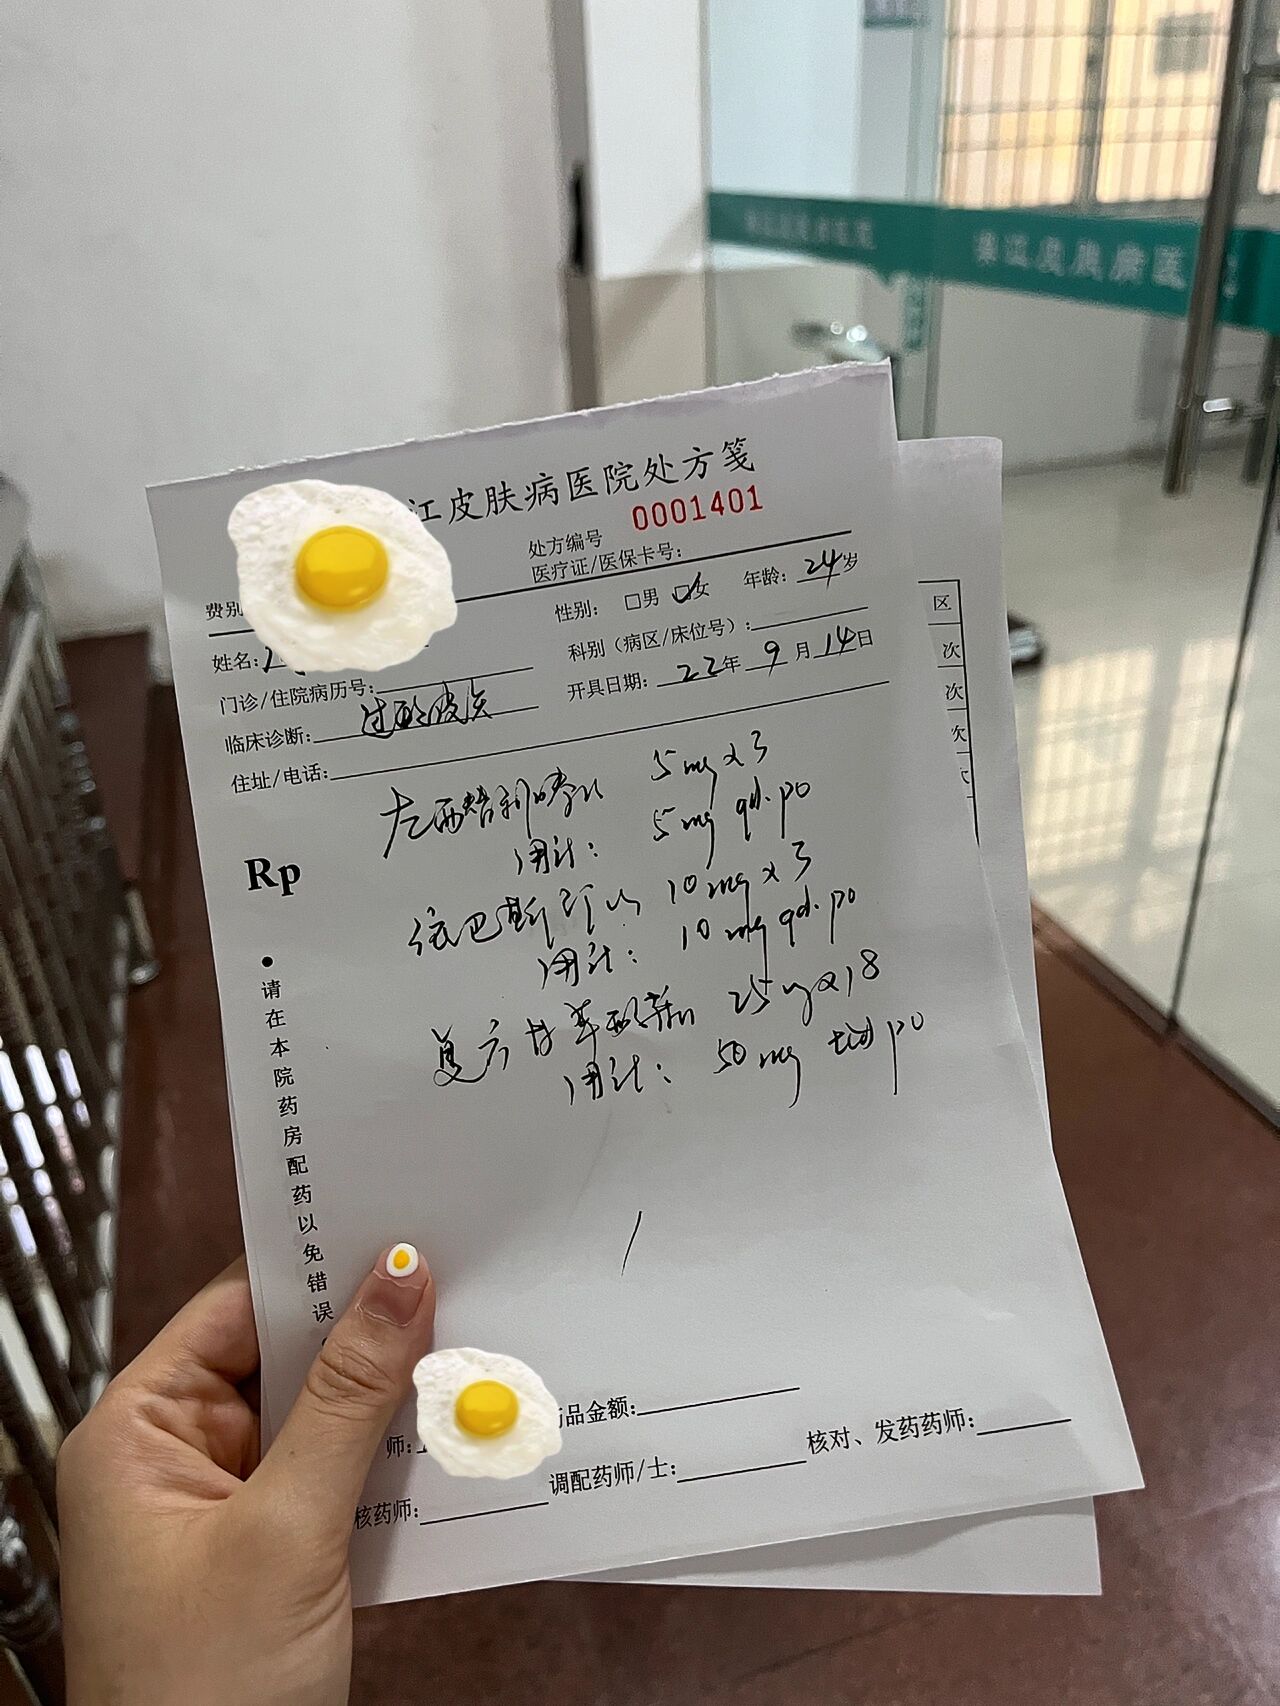 江皮肤病医院处方笺
处方编号 0001401
医疗证/医保卡号:
费别
性别: □男 ☑女 年龄: 24岁
姓名:
科别(病区/床位号):
门诊/住院病历号:
开具日期: 22年 9月 14日
临床诊断: 过敏皮炎
住址/电话:
左西替利嗪 5mg x 3
用法: 5mg qd. po
Rp
依巴斯汀 10mg x 3
用法: 10mg qd. po
复方甘草酸苷 25mg x 18
用法: 50mg tid po
●请在本院药房配药以免错误
品金额:
师:
核对、发药药师:
调配药师/士:
核药师:
区
次
次
次
皮肤病医